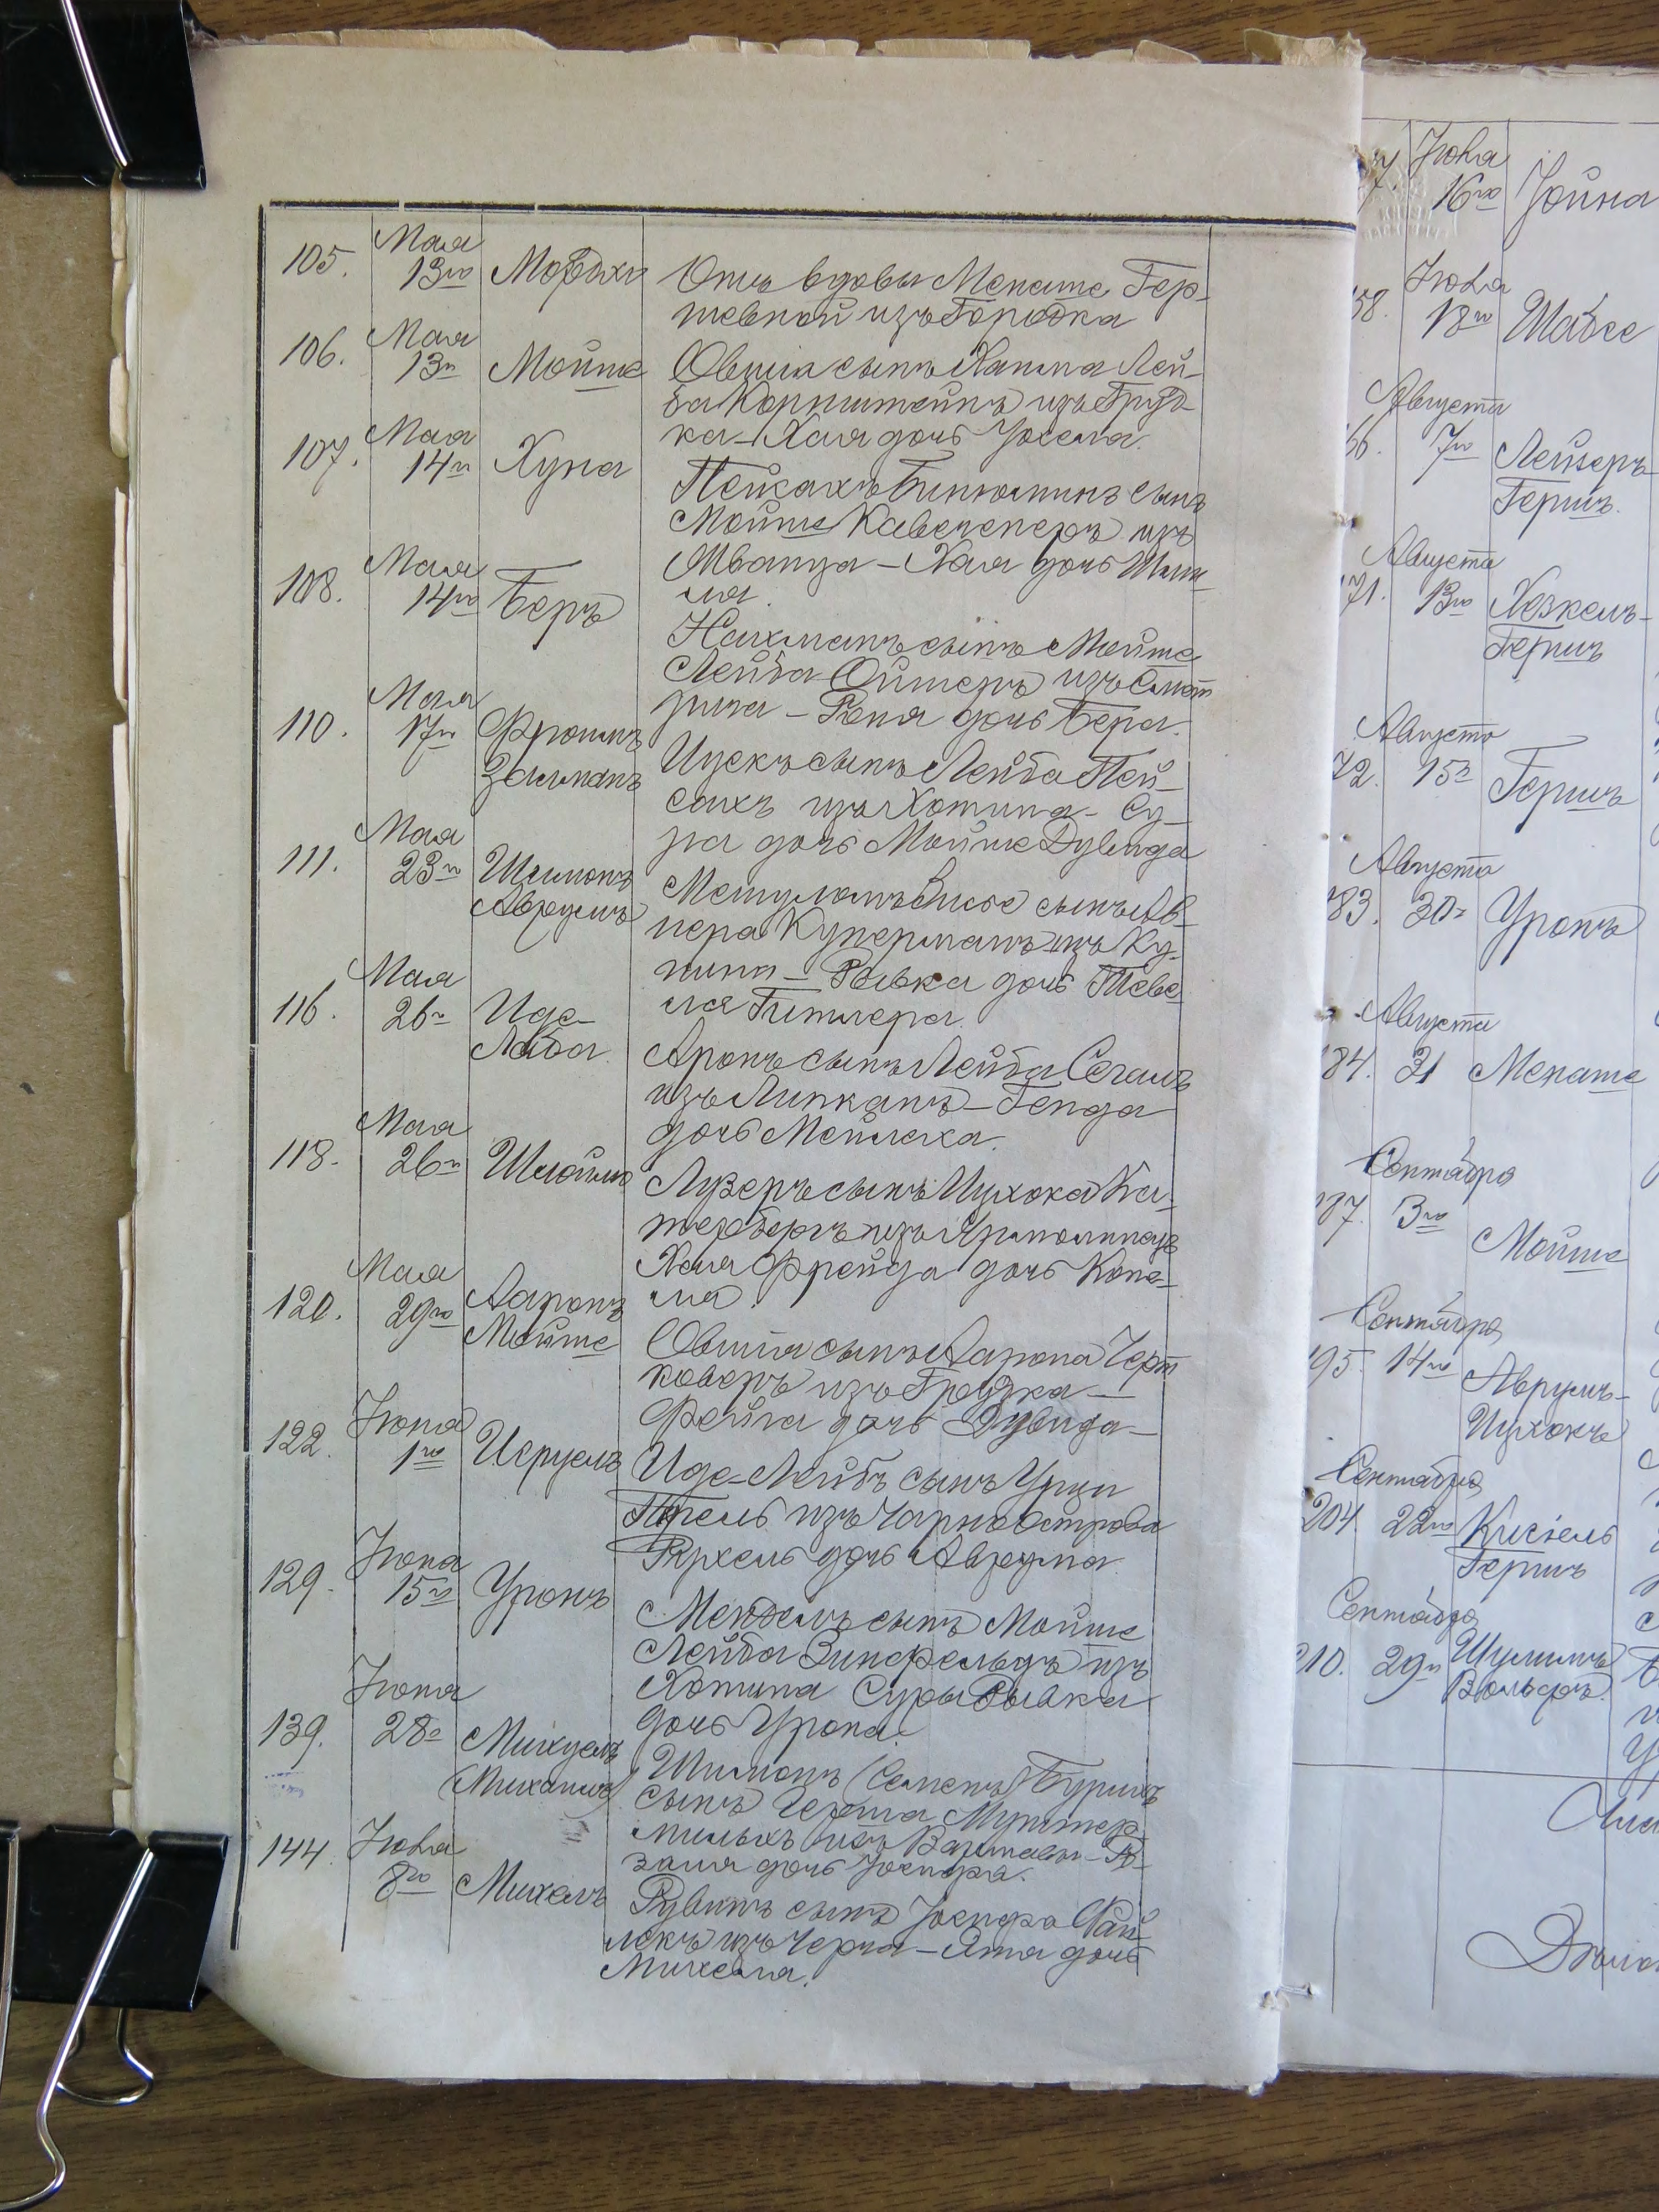 105. Мая 13го Мордко Отъ вдовы Менаше Гер-
шевной изъ Городка
106. Мая 13го Мойше Овшія сынъ Хаима Лей-
ба Корнштейнъ изъ Груд-
ка - Хая дочь Іосела.
107. Мая 14го Хуна
Пейсахъ Биніоминъ сынъ
Мойше изъ
Жванца - Хая дочь Шли-
ма.
108. Мая 14го Беръ
Нахманъ сынъ Мойше
Лейба Ойтеръ изъ Смот-
рича - Беня дочь Бера.
110. Мая 17го Фроимъ
Залманъ
Ицекъ сынъ Лейба Пей-
сахъ изъ Хотина - Су-
ра дочь Мойше Дувида
111. Мая 23го Шимонъ
Аврумъ
Мешуломъ сынъ Аб-
нера Куперманъ изъ Ку-
пина - Ривка дочь Теве-
ля Гитлера.
116. Мая 26го Иде-
Лейба.
Аронъ сынъ Лейба Сегалъ
изъ Липканъ - Генда
дочь Мейлеха.
118. Мая 26го Шлойма
Лузеръ сынъ Ицхока Ка-
цербергъ изъ Ярмолинецъ
Хая Фрейда дочь Копе-
ля.
120. Мая 29го Ааронъ
Мойше
Овшія сынъ Аарона Черт-
коверъ изъ Грудка -
Фейга дочь Дувида -
122. Іюня 1го Исруель
Иде-Лейбъ сынъ Урии
изъ Чарно Острова
Рухель дочь Аврума.
129. Іюня 15го Уронъ
Мендель сынъ Мойше
Лейба Зинфельдъ изъ
Хотина Суры Ривка
дочь Урона.
139. Іюня 28го Михуель
(Михаилъ)
Шимонъ (Семенъ) Бурихъ
сынъ Герша Муттер-
мильхъ изъ Варшавы - Ро-
залія дочь Іосифа.
144. Іюля 8го Михель
Рувинъ сынъ Іосифа Фай-
лекъ изъ Черча - Ята дочь
Михеля.
7. Іюля 16го Іойна
58. Іюля 18го Шабсе
66. Августа 7го Лейзеръ-
Гершъ.
171. Августа 13го Хезкель-
Гершъ
72. Августа 15го Гершъ
183. Августа 30го Уронъ
184. Августа 31 Менаше
187. Сентября 3го Мойше
195. Сентября 14го Аврумъ-
Ицхокъ
204. Сентября 22го Кисіель
Гершъ
210. Сентября 29го Шулимъ
Вольфъ.